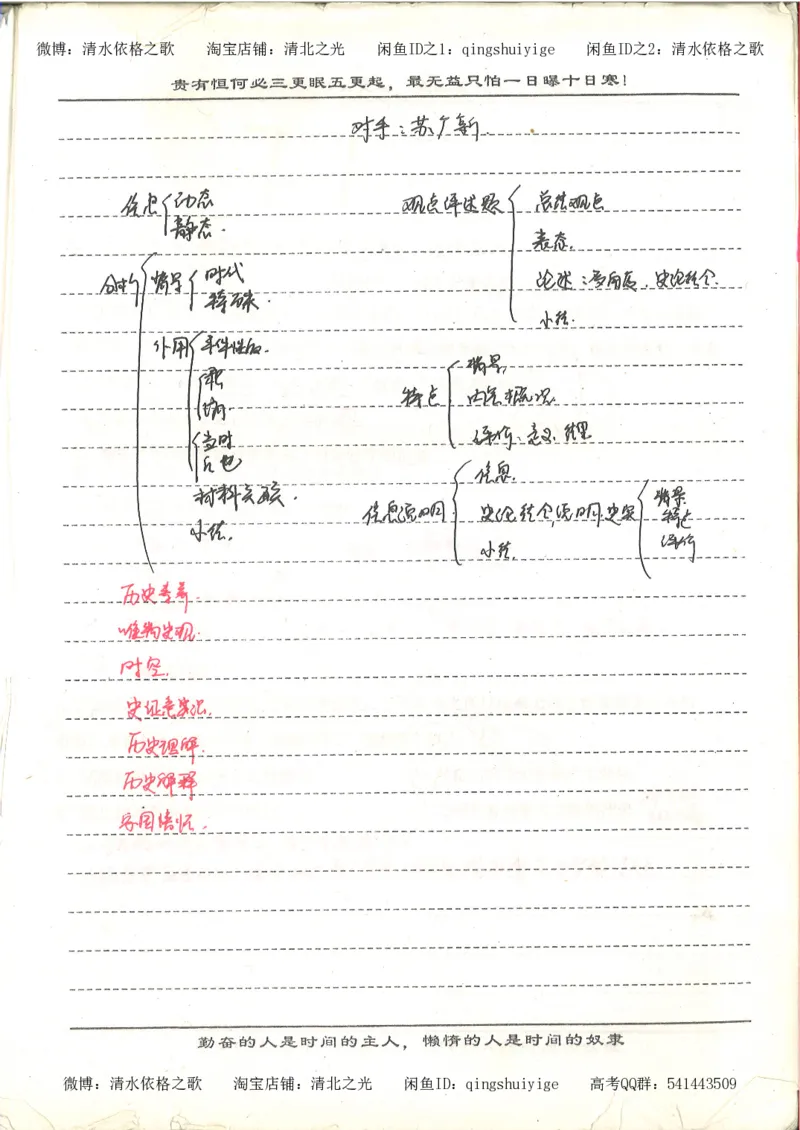 微博：清水依格之歌 淘宝店铺：清北之光 闲鱼ID之1：qingshuiyige 闲鱼ID之2：清水依格之歌
贵有恒何必三更眠五更起，最无益只怕一日曝十日寒！
对手：苏广新.
信息 动态
静态.
观点评述题 总结观点
表态.
论述：多角度，史论结合.
小结.
分析 背景 时代
特殊.
作用 事件性质.
当时
后世
材料
小结.
特点 背景
内容概况
评价、意义、
信息说明 信息.
史论结合，说明史实 背景
特点
评价
小结.
历史素养.
唯物史观.
时空.
史证意识.
历史理解.
历史解释
家国情怀.
勤奋的人是时间的主人，懒惰的人是时间的奴隶
微博：清水依格之歌 淘宝店铺：清北之光 闲鱼ID：qingshuiyige 高考QQ群：541443509